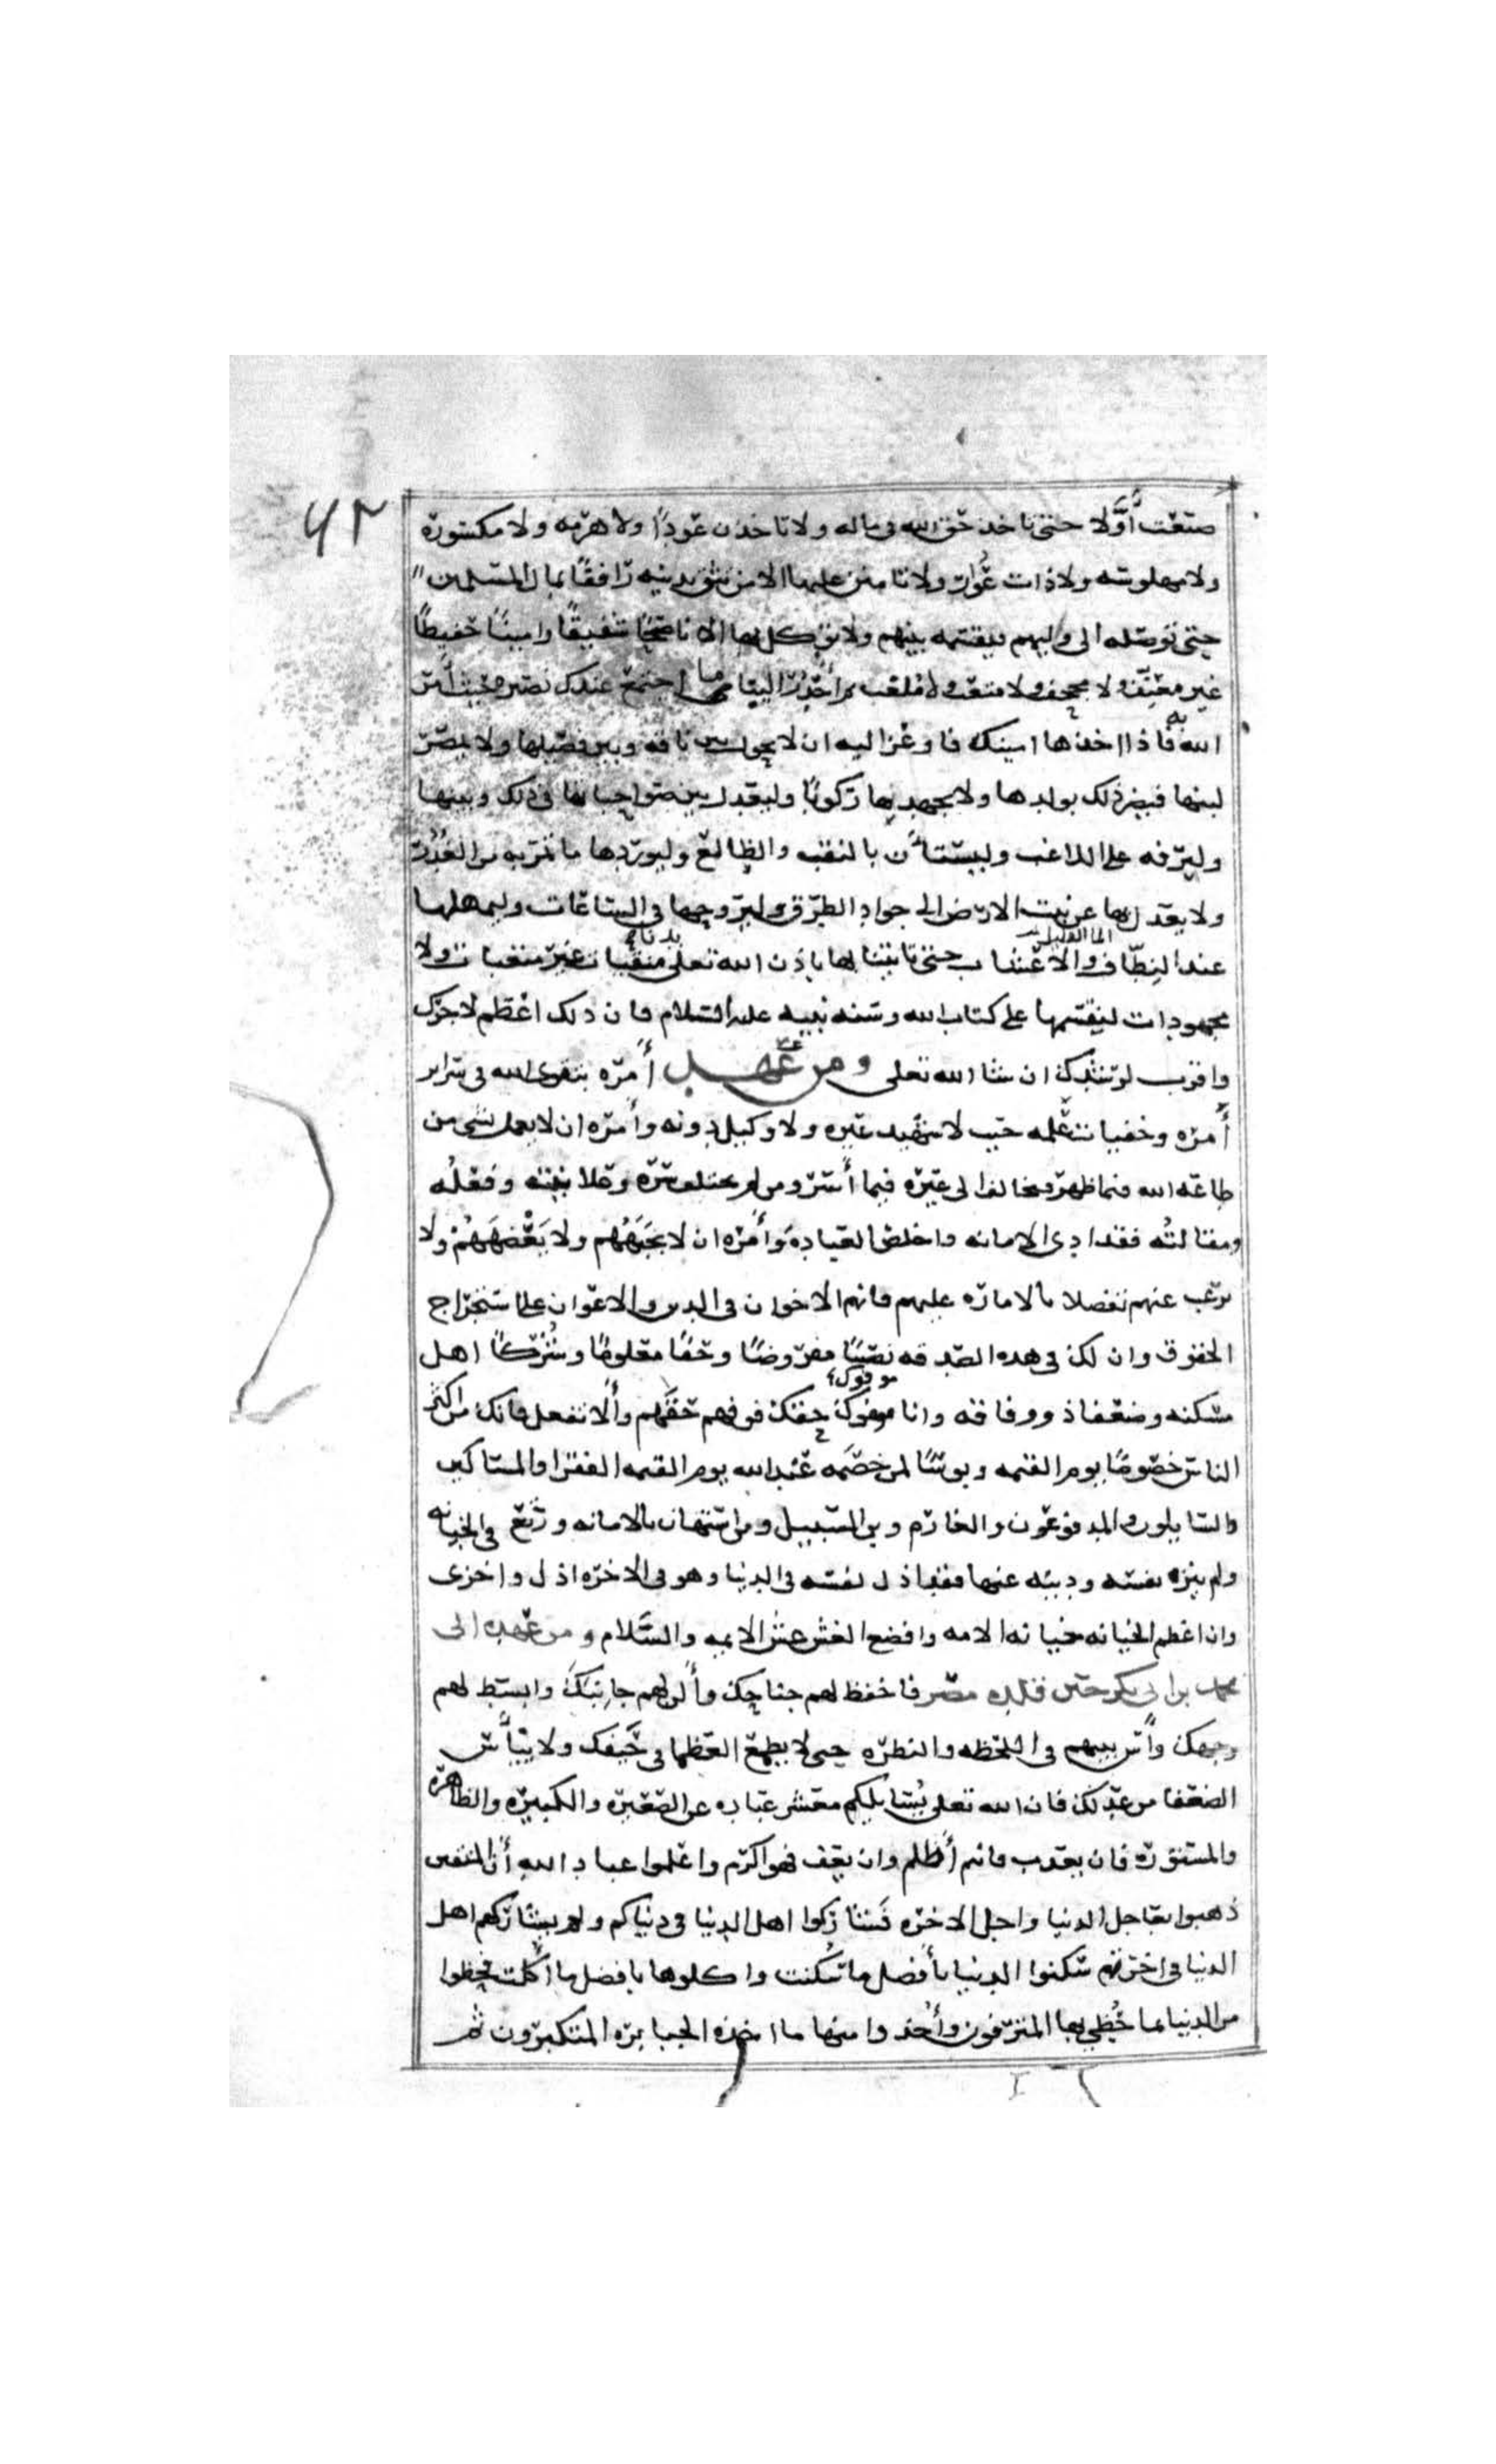 ٦٢
صنعت أولا حتى تاخذ حق الله فى ماله ولا تاخذن عودا ولا هرمه ولا مكسورة
ولا مهلوسه ولا ذات عوار ولا تامنن عليها الا من تثق بدينه رافقا بمال المسلمين
حتى توصله الى وليهم فيقسمه بينهم ولا توكل بها الا ناصحا شفيقا وامينا حفيظا
غير معنف ولا مجحف ولا متعب ثم أحدر الينا ما اجتمع عندك نصيره حيث أمر
الله به فاذا اخذها امينك فاوعز اليه ان لا يحول بين ناقه وبين فصيلها ولا يمصر
لبنها فيضر ذلك بولدها ولا يجهدنها ركوبا وليعدل بين صواحباتها فى ذلك وبينها
وليرفه على اللاغب وليستأن بالنقب والظالع وليوردها ما تمر به من الغدر
ولا يعدل بها عن نبت الارض الى جواد الطرق وليروحها فى الساعات وليمهلها
الما القليل
عند النطاف والاعشاب حتى تاتينا بها باذن الله تعلى منقيات غير متعبات ولا
مجهودات لنقسمها على كتاب الله وسنه نبيه عليه السلام فان ذلك اعظم لاجرك
واقرب لرشدك ان شا الله تعلى ومن عهد أمره بتقوى الله فى سراير
أمره وخفيات عمله حيث لا شهيد غيره ولا وكيل دونه وأمره ان لا يعمل بشى من
طاعه الله فيما ظهر فيخالف الى غيره فيما أسر ومن لم يختلف سره وعلانيته وفعله
ومقالته فقد ادى الامانه واخلص العبادة وأمره ان لا يجبههم ولا يعضههم ولا
يرغب عنهم تفضلا بالاماره عليهم فانهم الاخوان فى الدين والاعوان على استخراج
الحقوق وان لك فى هذه الصدقه نصيبا مفروضا وحقا معلوما وشركا اهل
مسكنه وضعفا ذو وفاقه وانا موفوك حقك فوفهم حقهم وألا تفعل فانك من اكثر
الناس خصوما يوم القيمه وبوسا لمن خصمه عند الله يوم القيمه الفقرا والمساكين
والسايلون والمدفوعون والغارم وبن السبيل ومن استهان بالامانه ورتع فى الخيانه
ولم ينزه نفسه ودينه عنها فقد اذل نفسه فى الدنيا وهو فى الاخره اذل واخزى
وان اعظم الخيانه خيانه الامه وافضع الغش غش الايمه والسلام ومن عهده الى
محمد بن ابى بكر حين قلده مصر فاخفظ لهم جناحك وألن لهم جانبك وابسط لهم
وجهك وأس بينهم فى اللحظه والنظره حتى لا يطمع العظما فى حيفك ولا ييأس
الضعفا من عدلك فان الله تعلى يسايلكم معشر عباده عن الصغيره والكبيره والظاهره
والمستوره فان يعذب فانتم أظلم وان يعف فهو اكرم واعلموا عباد الله أن المتقين
ذهبوا بعاجل الدنيا واجل الاخره فشاركوا اهل الدنيا فى دنياكم ولم يشاركهم اهل
الدنيا فى اخرتهم سكنوا الدنيا بأفضل ما سكنت واكلوها بافضل ما اكلت فحظوا
من الدنيا بما حظي بها المترفون وأخذوا منها ما اخذه الجبابره المتكبرون ثم